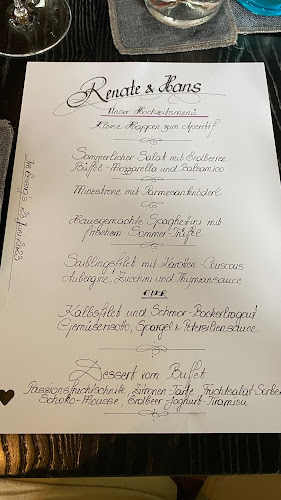 Renate & Hans
Unser Hochzeitsmenü
Kleine Happen zum Aperitif
Sommerlicher Salat mit Erdbeeren
Büffel-Mozzarella und Balsamico
Minestrone mit Parmesanknöderl
Hausgemachte Spaghettini mit
frischem Sommer-Trüffel
Saiblingsfilet mit Karotten-Couscous
Aubergine, Zucchini und Thymiansauce
ODER
Kalbsfilet und Schmor-Backerlragout
Gemüserisotto, Spargel & Petersiliensauce
Dessert vom Buffet
Passionsfruchtschnitte, Zitronen-Tarte, Fruchtsalat-Sorbet
Schoko-Mousse, Erdbeer-Joghurt-Tiramisu
Juni 2023